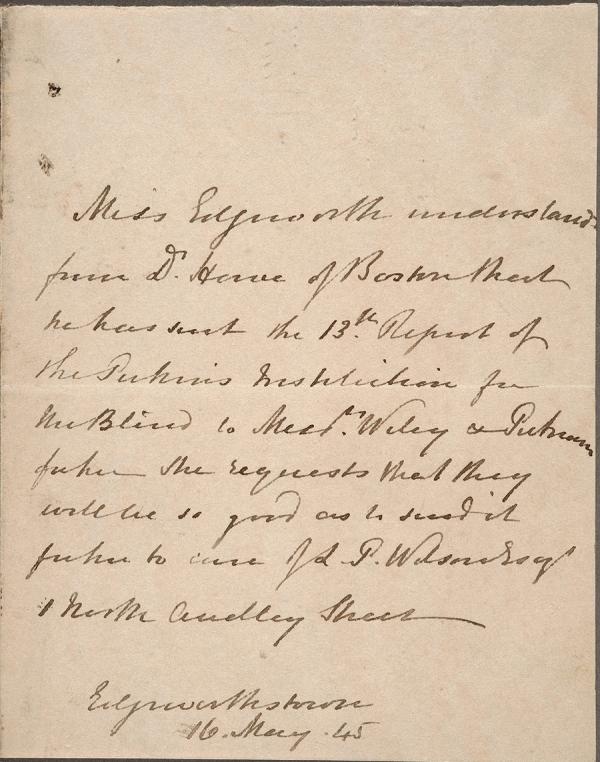 Miss Edgeworth understands
from Dr. Howe of Boston that
he has sent the 13th. Report of
the Perkins Institution for
the Blind to Messrs. Wiley & Putnam
for her She requests that they
will be so good as to send it
for her to care of L P. Wilson Esqr
1 North Audley Street
Edgeworthstown
16. May. 45